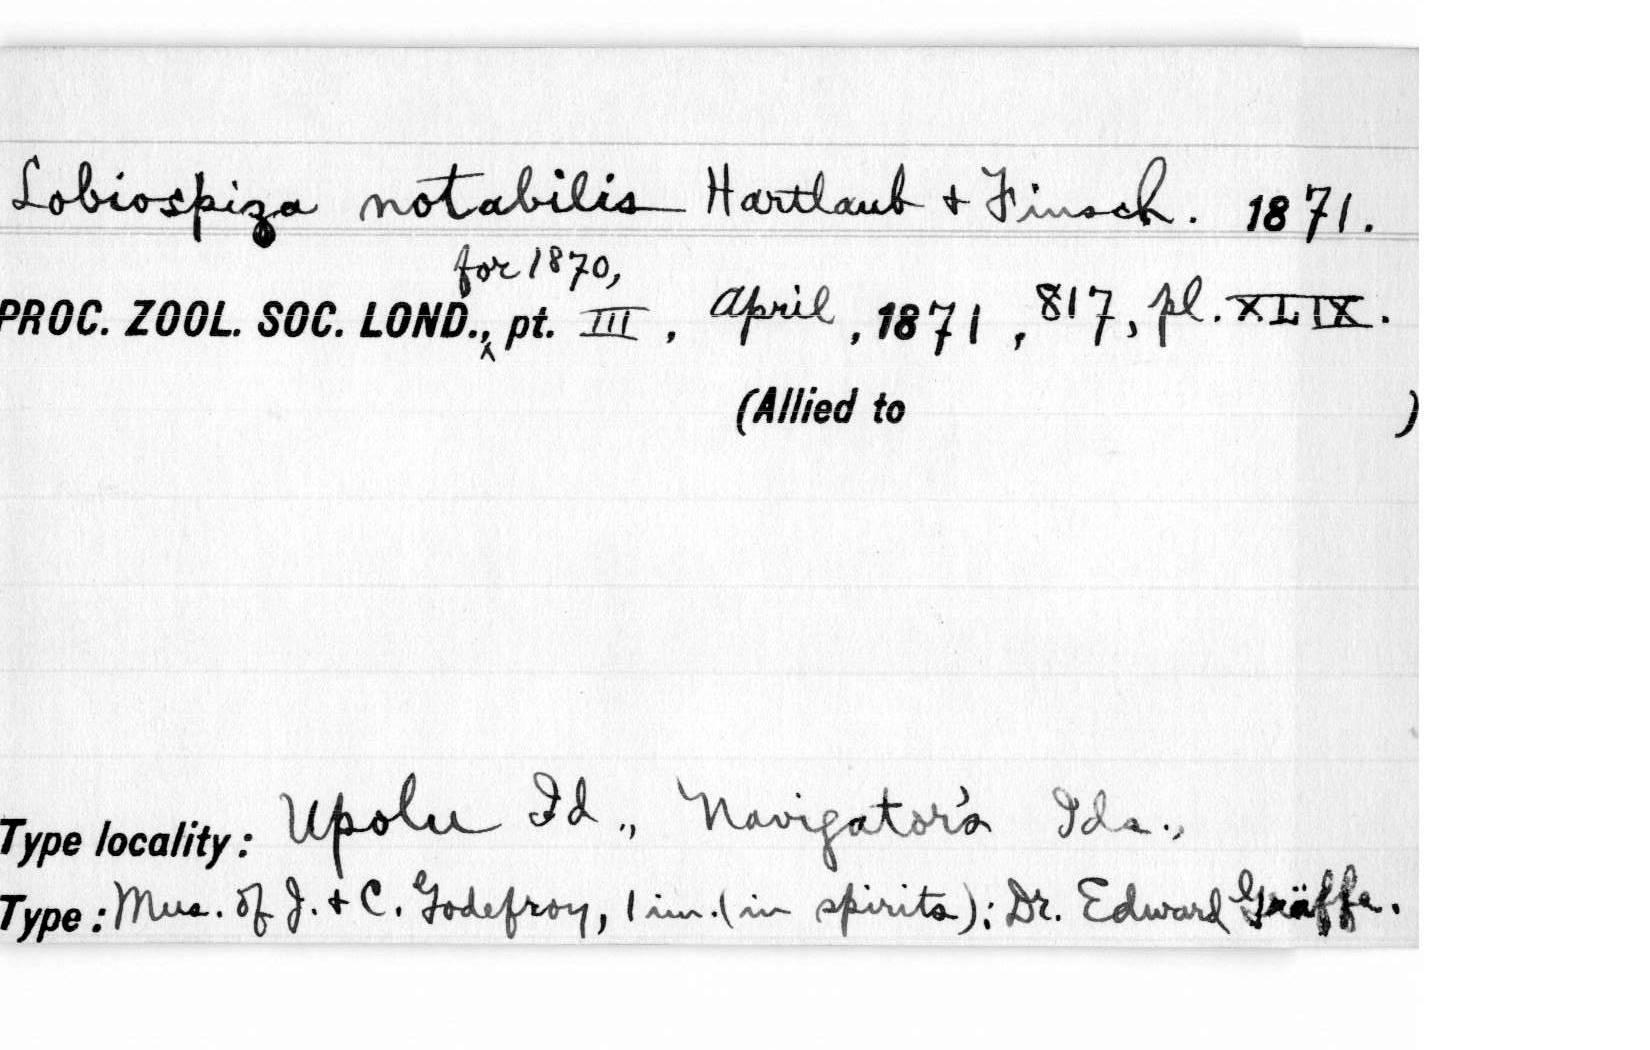 Lobiospiza notabilis Hartlaub + Finsch. 1871.
for 1870,
PROC. ZOOL. SOC. LOND., pt. III, April, 1871, 817, pl. XLIX.
(Allied to )
Type locality: Upolu Id., Navigator's Ids.,
Type: Mus. of J. + C. Godefroy, 1 im. (in spirits); Dr. Edward Gräffe.